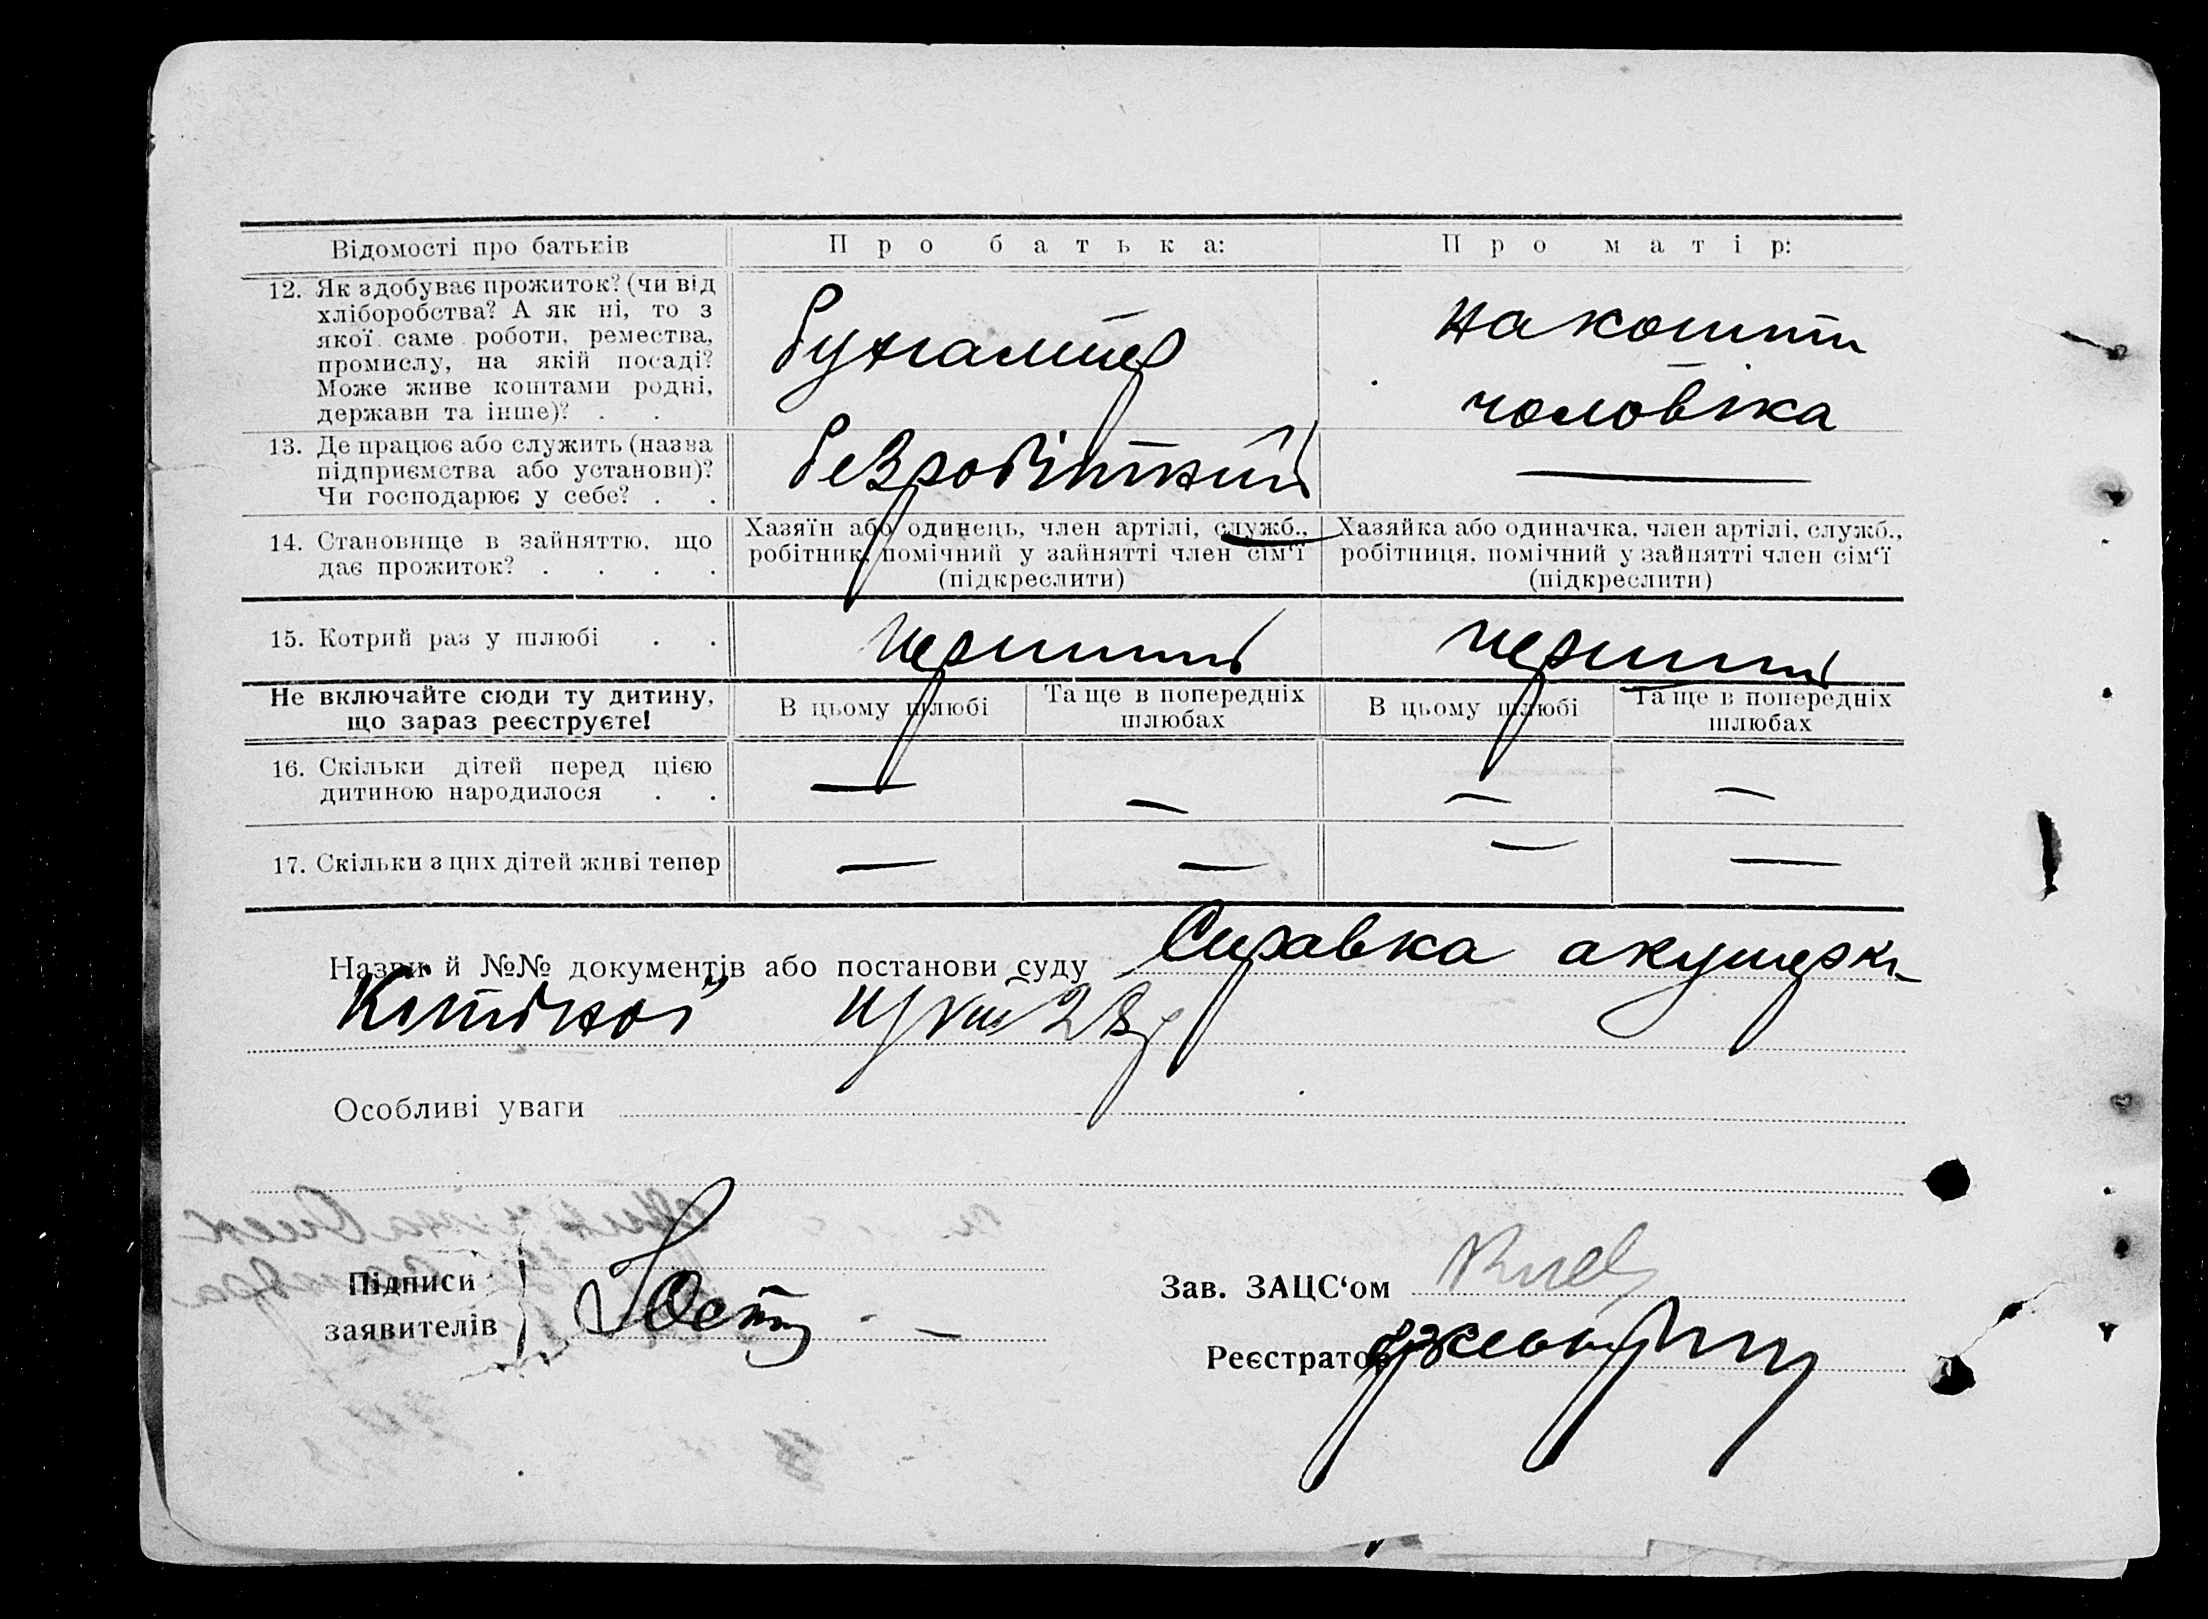 Відомості про батьків
Про батька:
Про матір:
12. Як здобуває прожиток? (чи від
хліборобства? А як ні, то з
якої саме роботи, ремества,
промислу, на якій посаді?
Може живе коштами родні,
держави та інше)? . .
Бухгалтер
на кошти
чоловіка
13. Де працює або служить (назва
підприємства або установи)?
Чи господарює у себе? . .
безробітний
—
14. Становище в зайняттю, що
дає прожиток? . . . .
Хазяїн або одинець, член артілі, служб.,
робітник, помічний у зайнятті член сім‘ї
(підкреслити)
Хазяйка або одиначка, член артілі, служб.,
робітниця, помічний у зайнятті член сім‘ї
(підкреслити)
15. Котрий раз у шлюбі . .
перший
перший
Не включайте сюди ту дитину,
що зараз реєструєте!
В цьому шлюбі
Та ще в попередніх
шлюбах
В цьому шлюбі
Та ще в попередніх
шлюбах
16. Скільки дітей перед цією
дитиною народилося . .
— — — —
17. Скільки з цих дітей живі тепер
— — — —
Назви й №№ документів або постанови суду Справка акушерки
Особливі уваги
Підписи
заявителів
Зав. ЗАЦС‘ом
Реєстратор